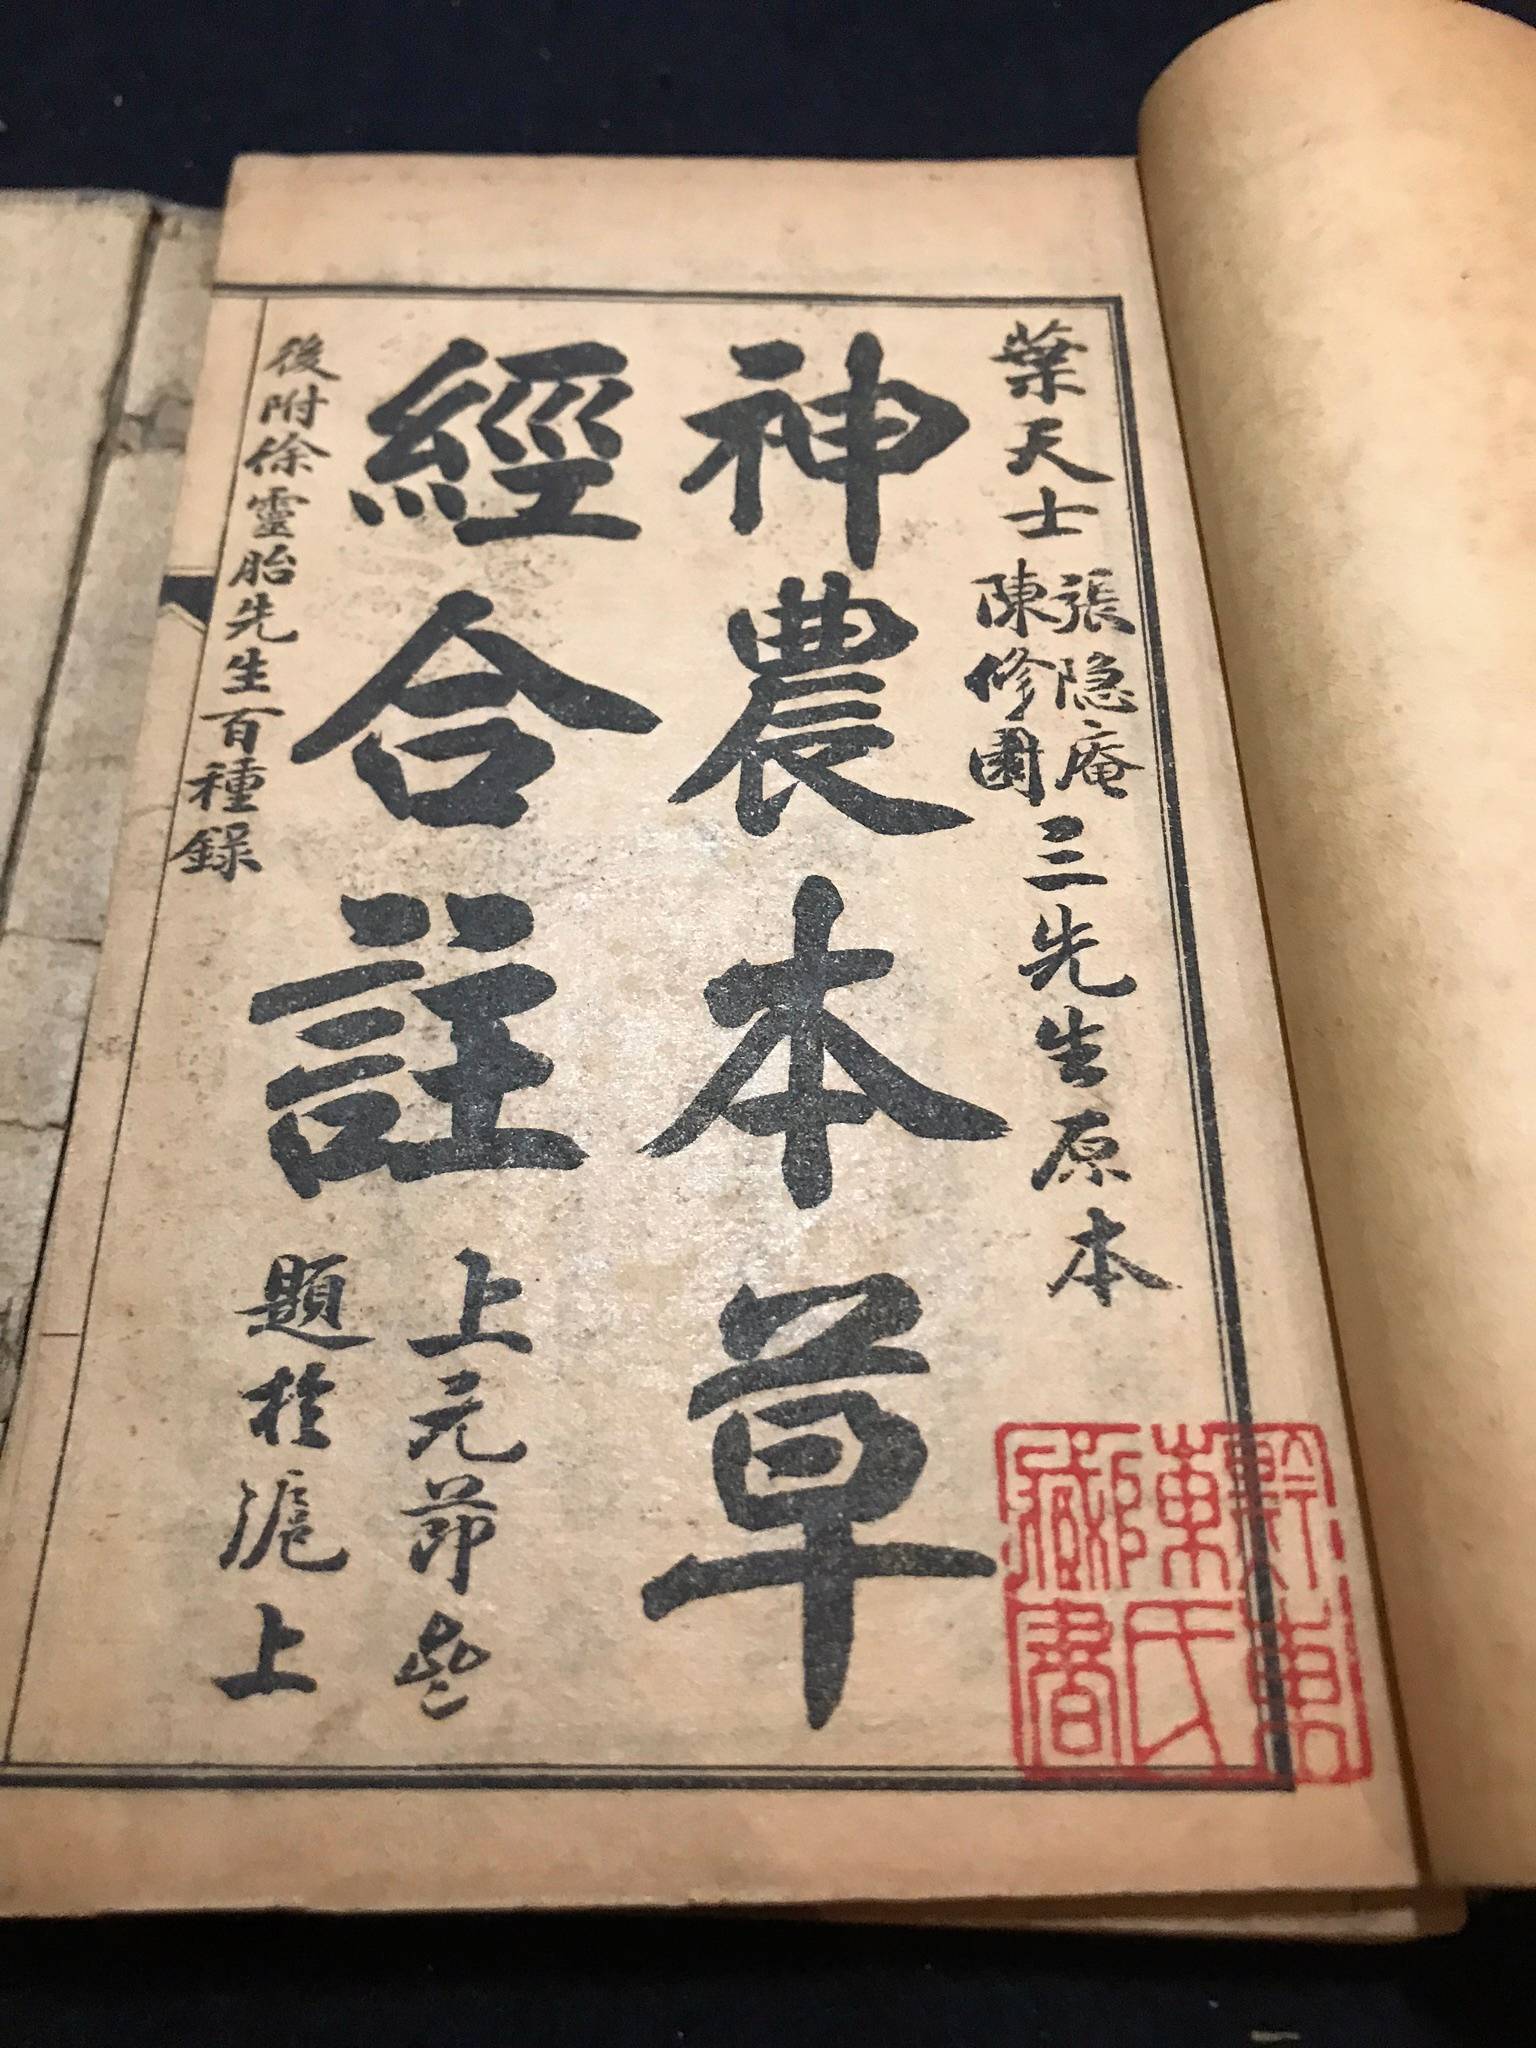 葉天士
張隐庵
陳修園
三先生原本
神農本草
經合註
上元
題於滬上
後附徐靈胎先生百種錄
黔東
陳氏
藏書